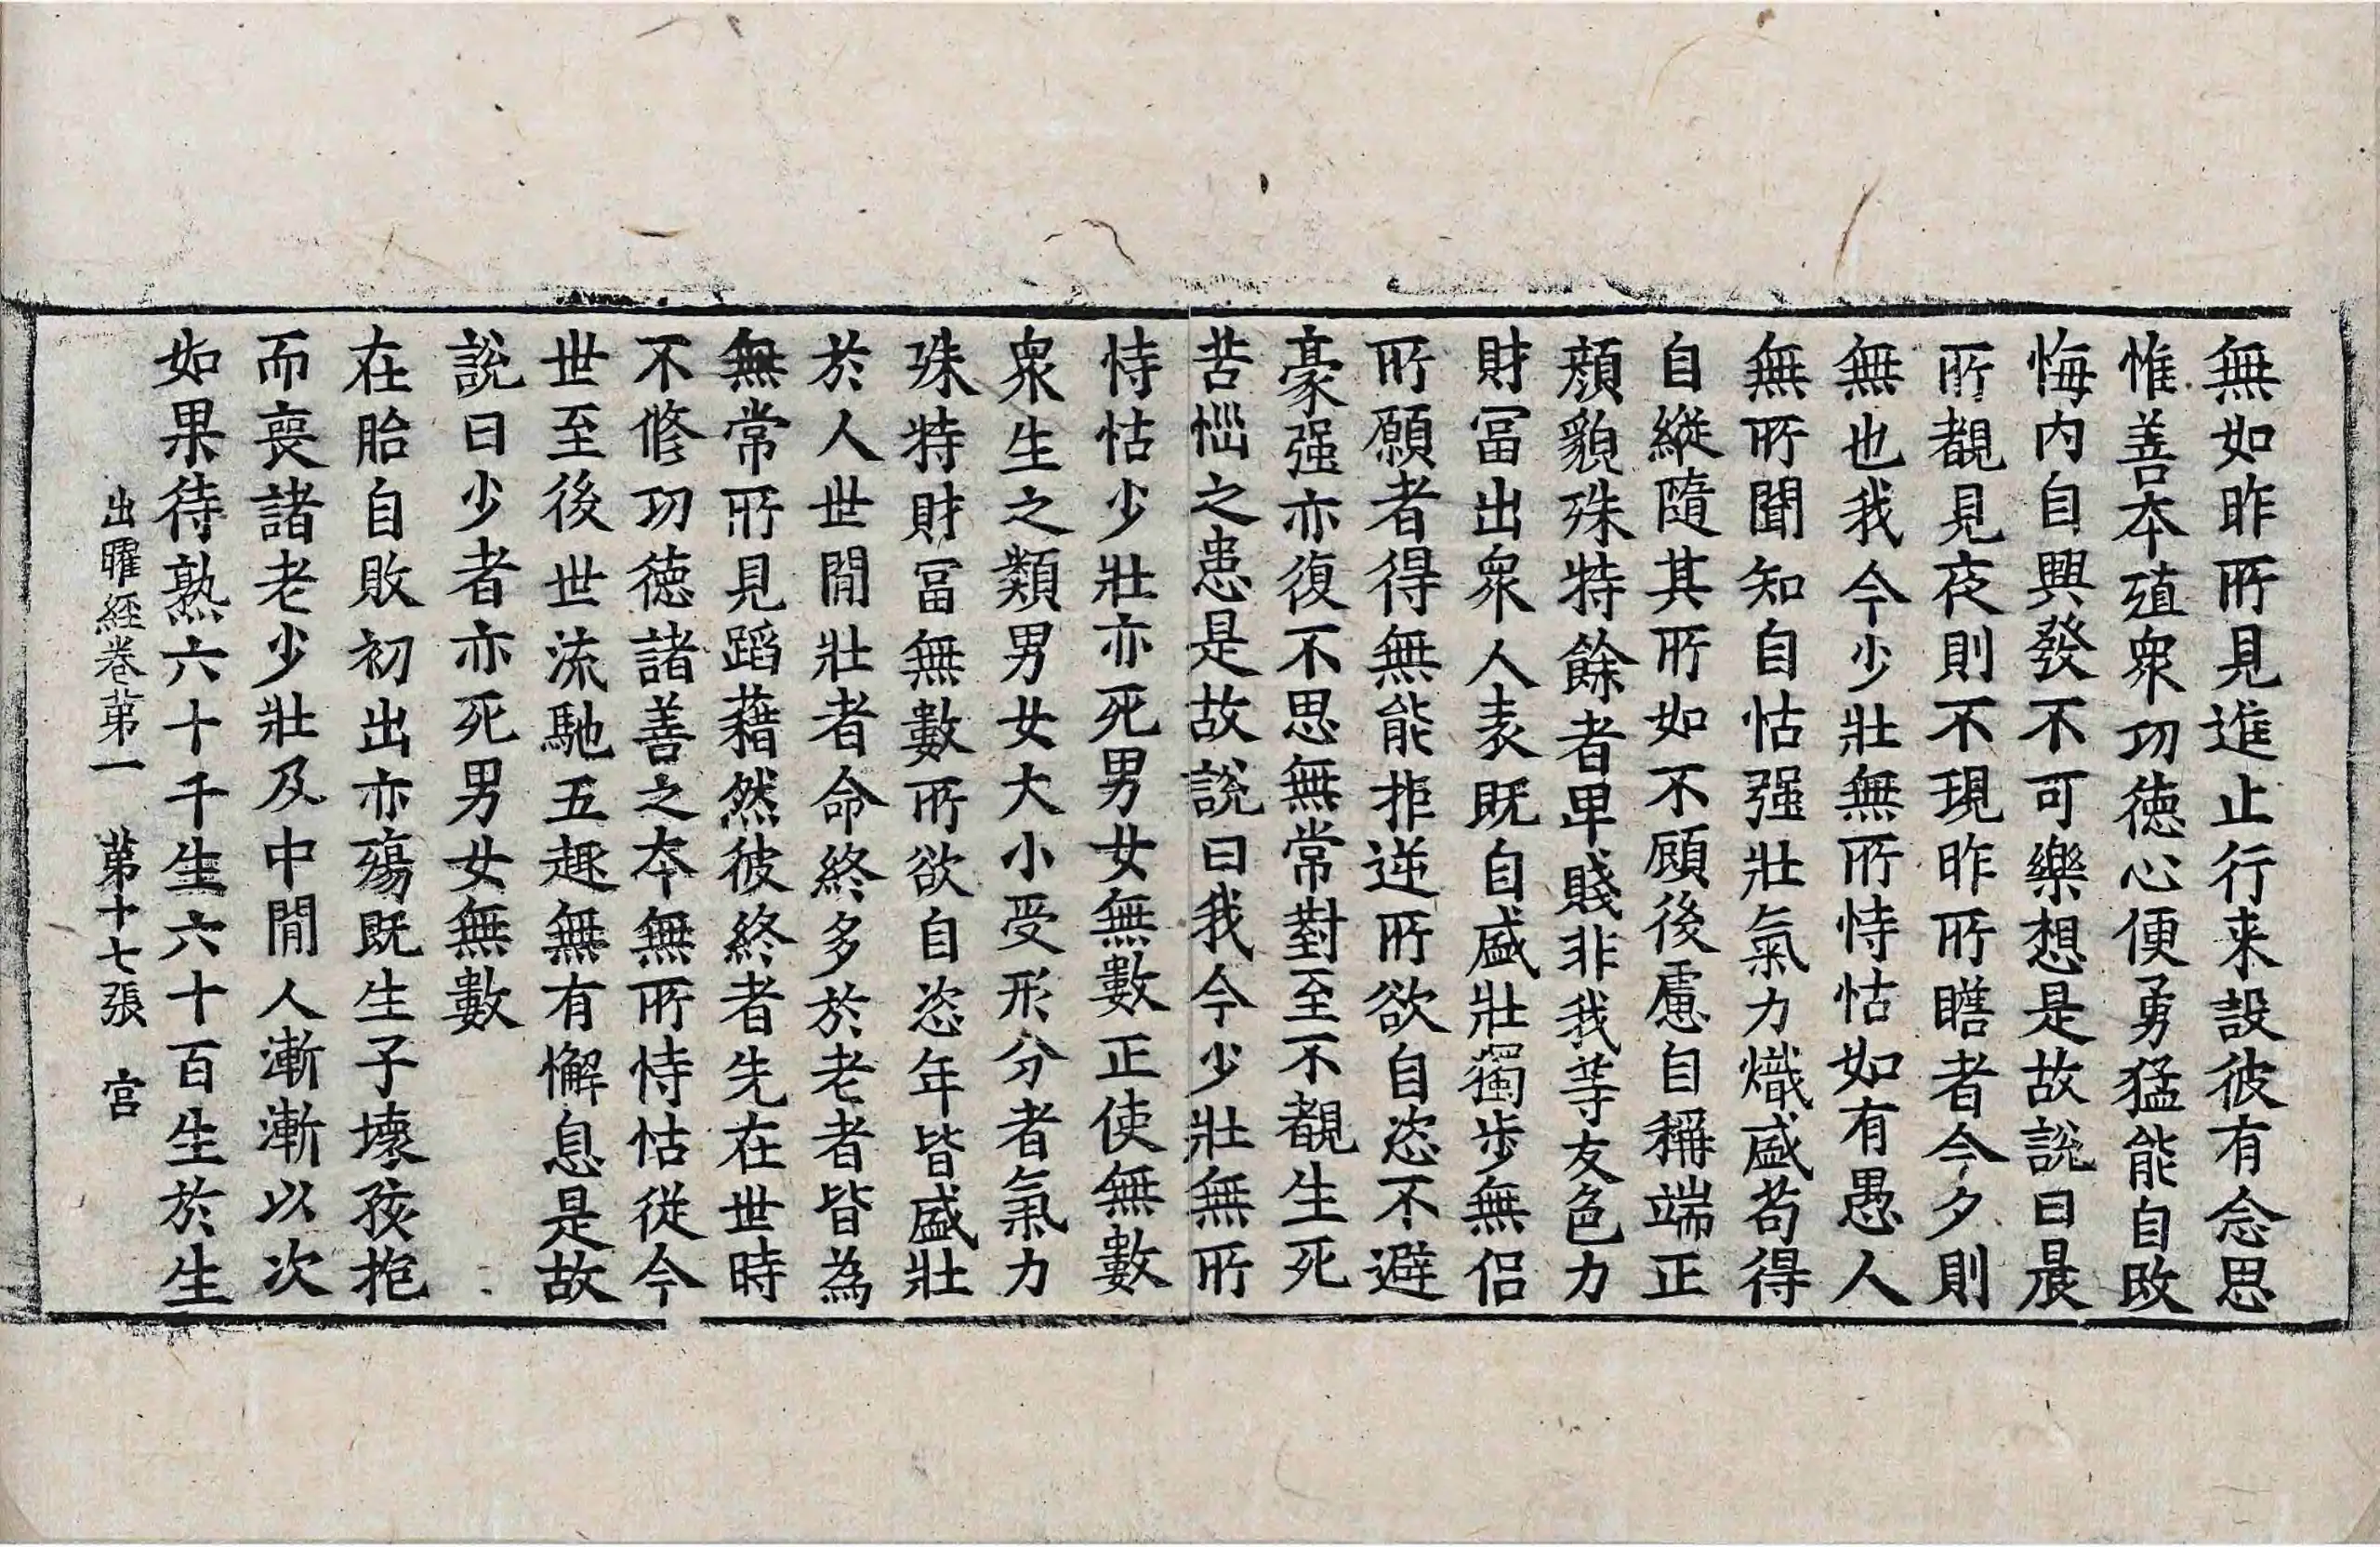 無如昨所見進止行来設彼有念思
惟善本殖衆功德心便勇猛能自改
悔內自興發不可樂想是故說曰晨
所覩見夜則不現昨所瞻者今夕則
無也我今少壯無所恃怙如有愚人
無所聞知自怙强壯氣力熾盛苟得
自縱隨其所如不顧後慮自稱端正
顏貌殊特餘者卑賤非我等友色力
財冨出衆人表旣自盛壯獨步無侣
所願者得無能拒逆所欲自恣不避
豪强亦復不思無常對至不覩生死
苦惱之患是故說曰我今少壯無所
恃怙少壯亦死男女無數正使無數
衆生之類男女大小受形分者氣力
殊特財冨無數所欲自恣年皆盛壯
於人世閒壯者命終多於老者皆為
無常所見蹈藉然彼終者先在世時
不修功德諸善之本無所恃怙從今
世至後世流馳五趣無有懈息是故
說曰少者亦死男女無數
在胎自敗初出亦殤旣生子壞孩抱
而喪諸老少壯及中閒人漸漸以次
如果待熟六十千生六十百生於生
出曜經卷第一　第十七張　宮